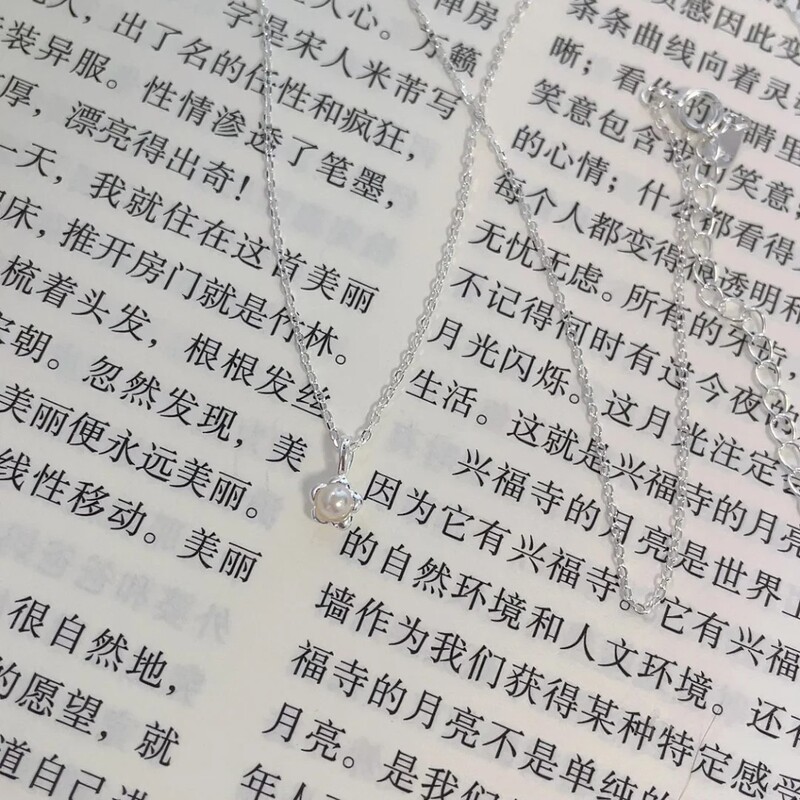 禅房
人心。万籁
字是宋人米芾写
人，出了名的任性和疯狂，
装异服。性情渗透了笔墨，
厚，漂亮得出奇！
一天，我就住在这首美丽
床，推开房门就是竹林。
梳着头发，根根发丝
朝。忽然发现，美
美丽便永远美丽。
线性移动。美丽
很自然地，
的愿望，就
道自己进
质感因此变
条条曲线向着灵
晰；看你的眼睛里
笑意包含我的笑意，
的心情；什么都看得
每个人都变得很透明和
无忧无虑。所有的牙齿，
不记得何时有过今夜的
月光闪烁。这月光注定
生活。这就是兴福寺的月亮
兴福寺的月亮是世界上
因为它有兴福寺。它有兴福
的自然环境和人文环境。还有
墙作为我们获得某种特定感受
福寺的月亮不是单纯的
月亮。是我们
年人